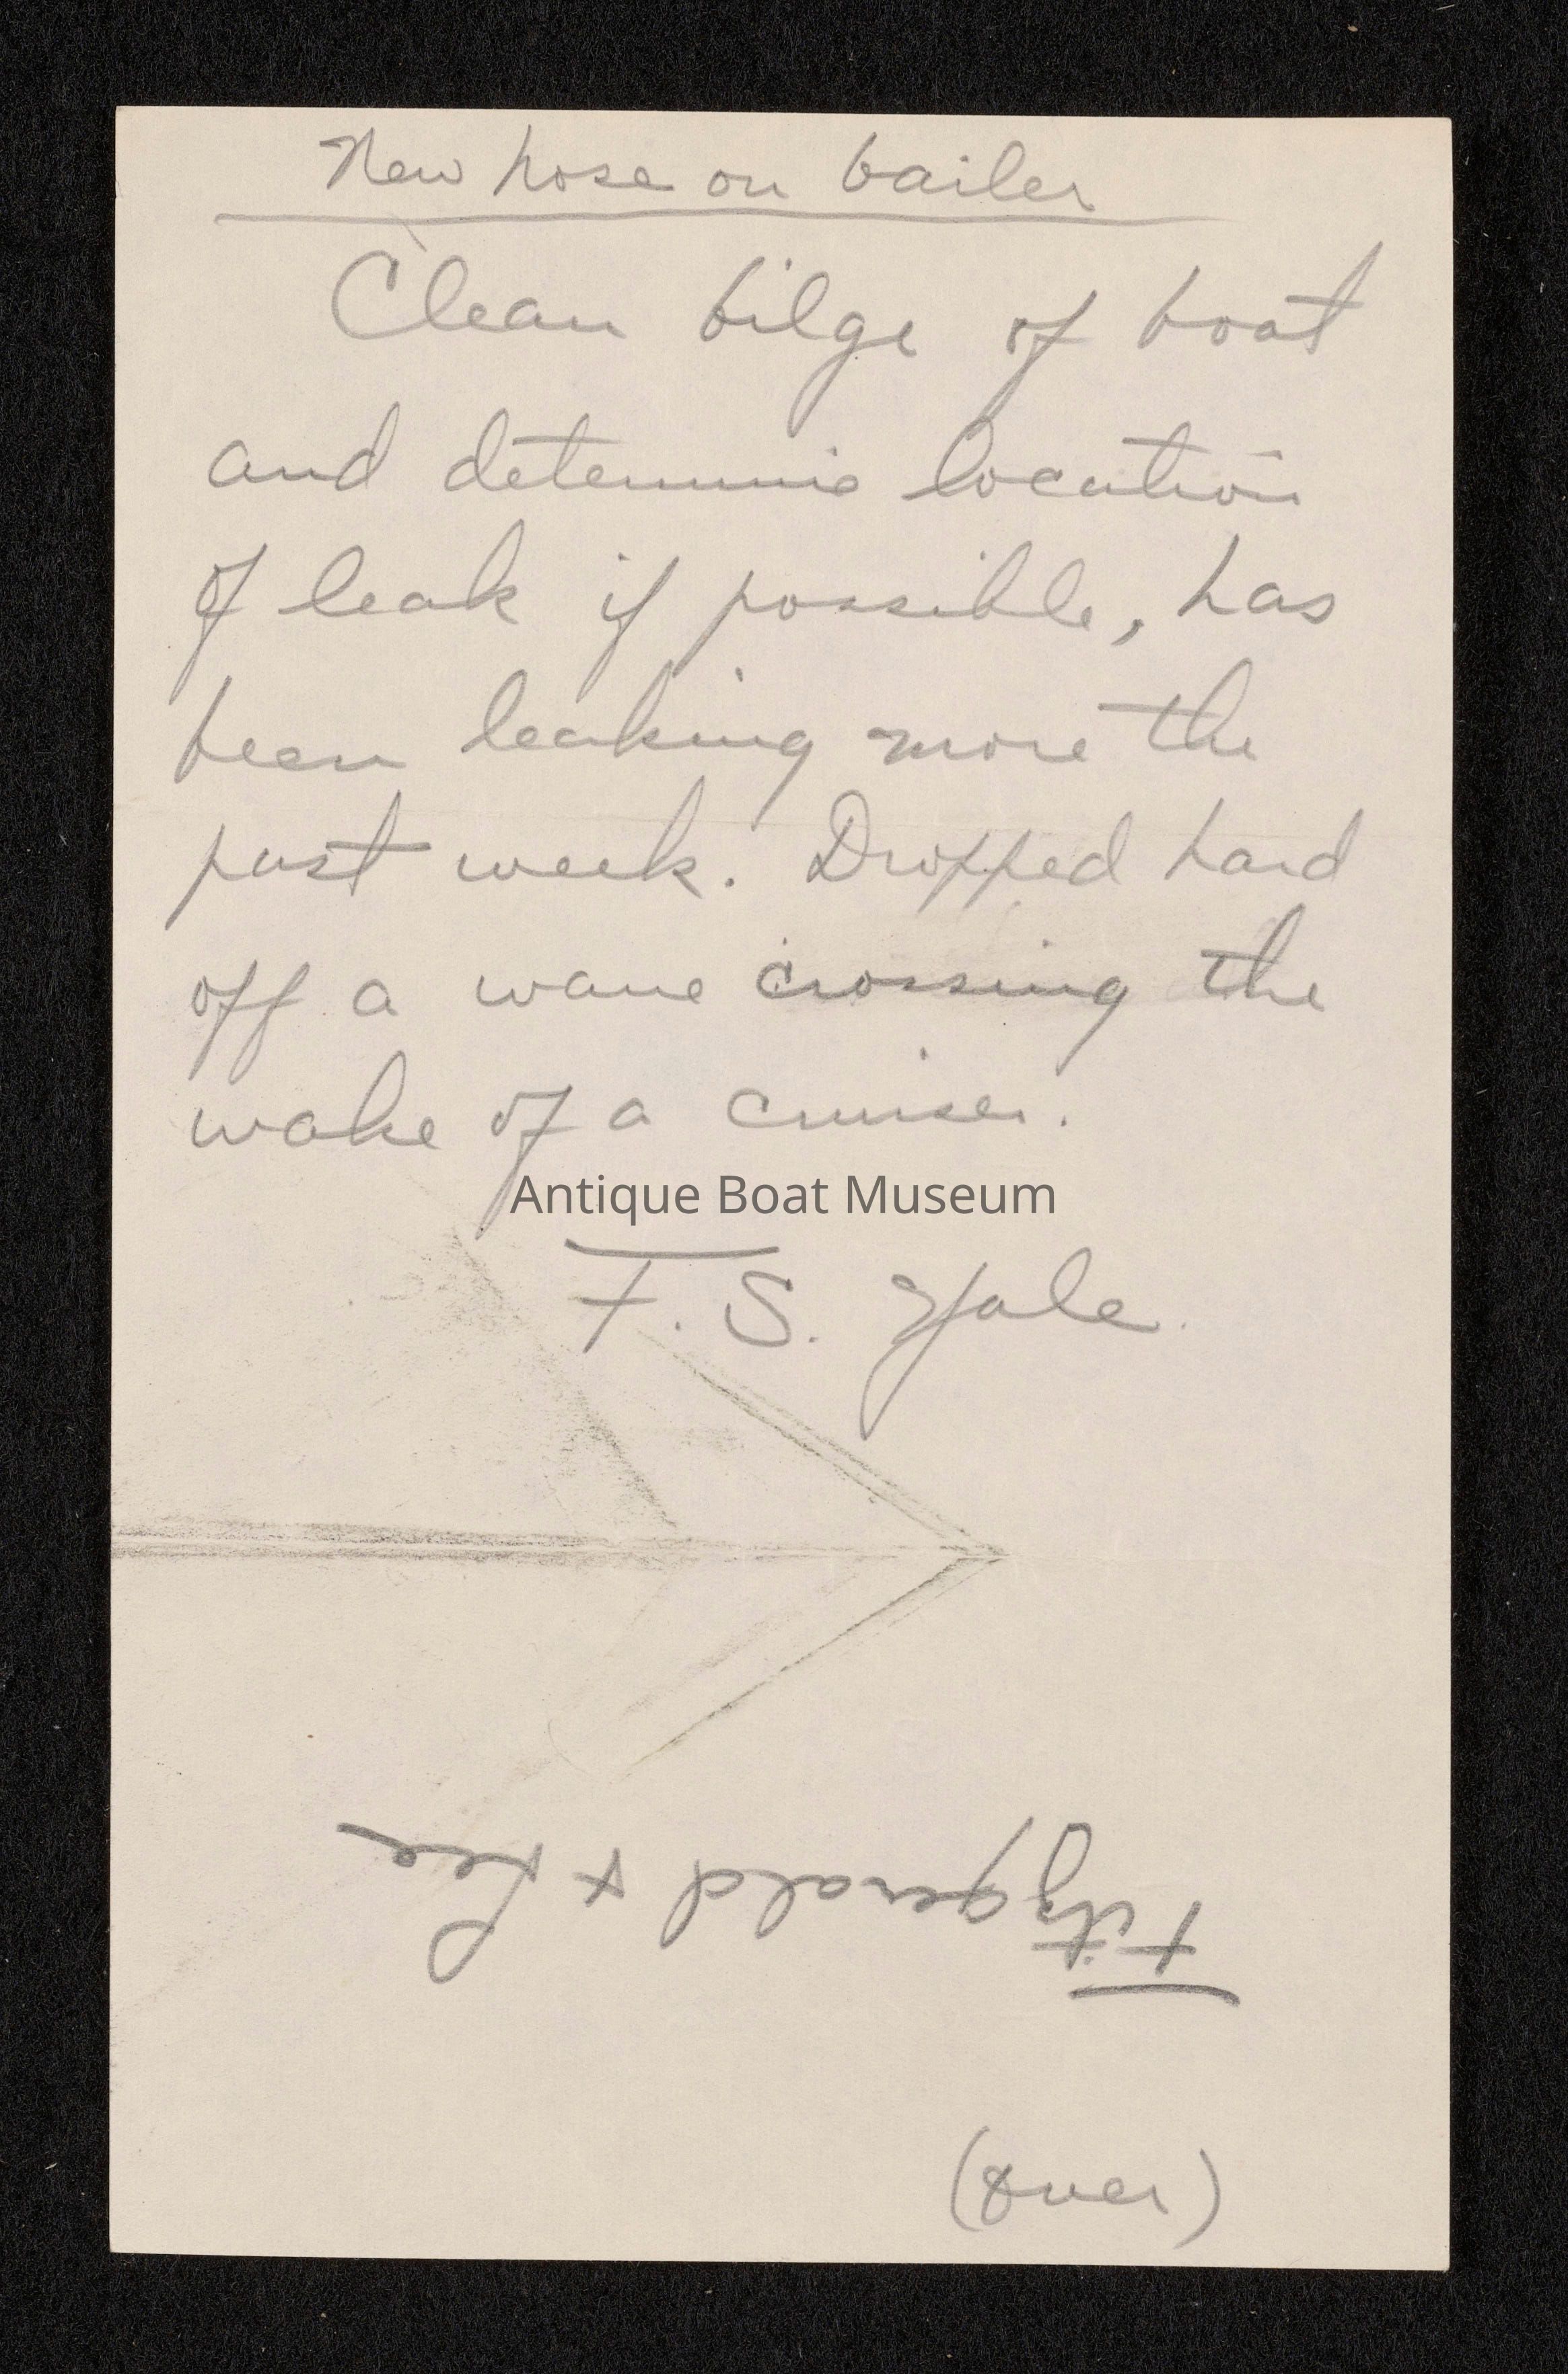 New hose on bailer
Clean bilge of boat
and determine location
of leak if possible, has
been leaking more the
past week. Dropped hard
off a wave crossing the
wake of a cruiser.
Antique Boat Museum
F. S. Yale.
Fitzgerald + Lee
(over)